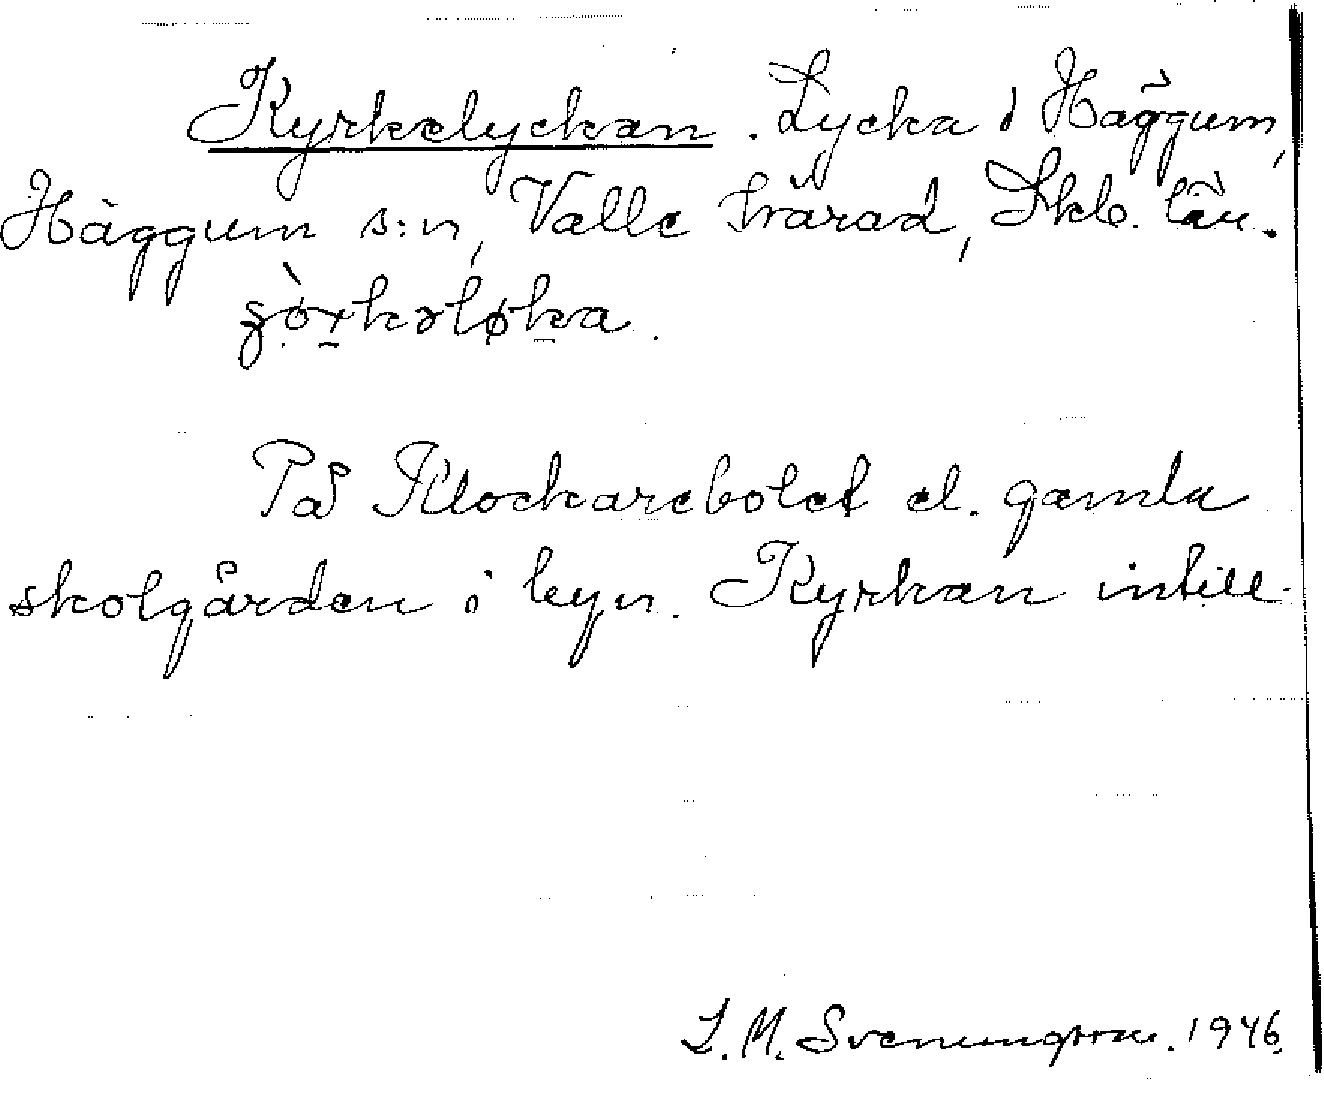 Kyrkelyckan. Lycka i Häggum,
Häggum s:n, Valle härad, Skb. län.
På Klockarebolet el. gamla
skolgården i byn. Kyrkan intill.
S. M. Svenungsson. 1946.